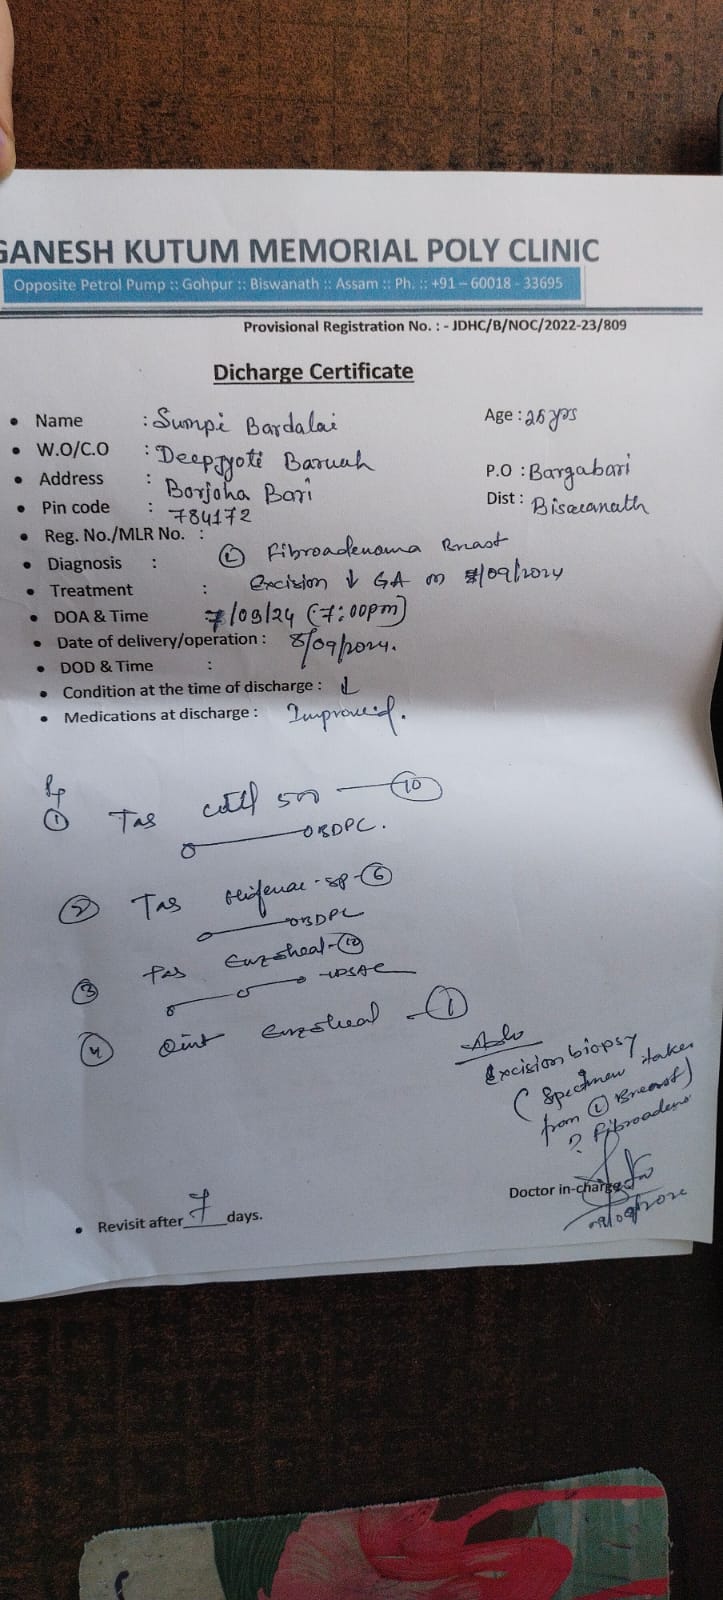 GANESH KUTUM MEMORIAL POLY CLINIC
Opposite Petrol Pump :: Gohpur :: Biswanath :: Assam :: Ph. :: +91 – 60018 - 33695
Provisional Registration No. : - JDHC/B/NOC/2022-23/809
Dicharge Certificate
• Name : Sumpi Bardalai Age :
• W.O/C.O : Deepjyoti Baruah
• Address : Borjoha Bari P.O : Bargabari
• Pin code : 784172 Dist : Biswanath
• Reg. No./MLR No. :
• Diagnosis : Ⓛ Fibroadenoma Breast
• Treatment : Excision ↓ GA on 8/09/2024
• DOA & Time 7/09/24 (7:00pm)
• Date of delivery/operation : 8/09/2024.
• DOD & Time :
• Condition at the time of discharge : ↓
• Medications at discharge : Improved.
Rp
① Tab 500 — ⑩
BDPC.
② Tab -SP-⑥
BDPC
③ Tab Enzoheal-⑩
④ Oint Enzoheal -①
Excision biopsy
(Specimen taken
from Ⓛ Breast)
? Fibroadeno
Doctor in-charge
• Revisit after 7 days.